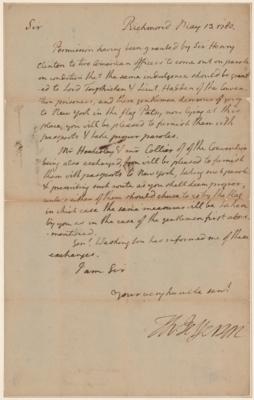 Sir Richmond May 13. 1780.
Permission having been granted by Sir Henry
Clinton to two American officers to come out on parole
on condition that the same indulgence should be grant-
ed to Lord Torphichen & Lieut. Hadden of the Conven-
tion prisoners, and these gentlemen desirous of going
to New York in the flag Patsy, now lying at this
place, you will be pleased to furnish them with
passports & take proper paroles.
Mr and Mr Collier of the Convention
being also exchanged, you will be pleased to furnish
them with passports to New York, taking such parole
& permitting such route as you shall deem proper,
unless either of them should chuse to go by the flag
in which case the same measures will be taken
by you as in the case of the gentlemen first above
mentioned.
Genl. Washington has informed me of these
exchanges.
I am Sir
Your very humble servt.
Th: Jefferson